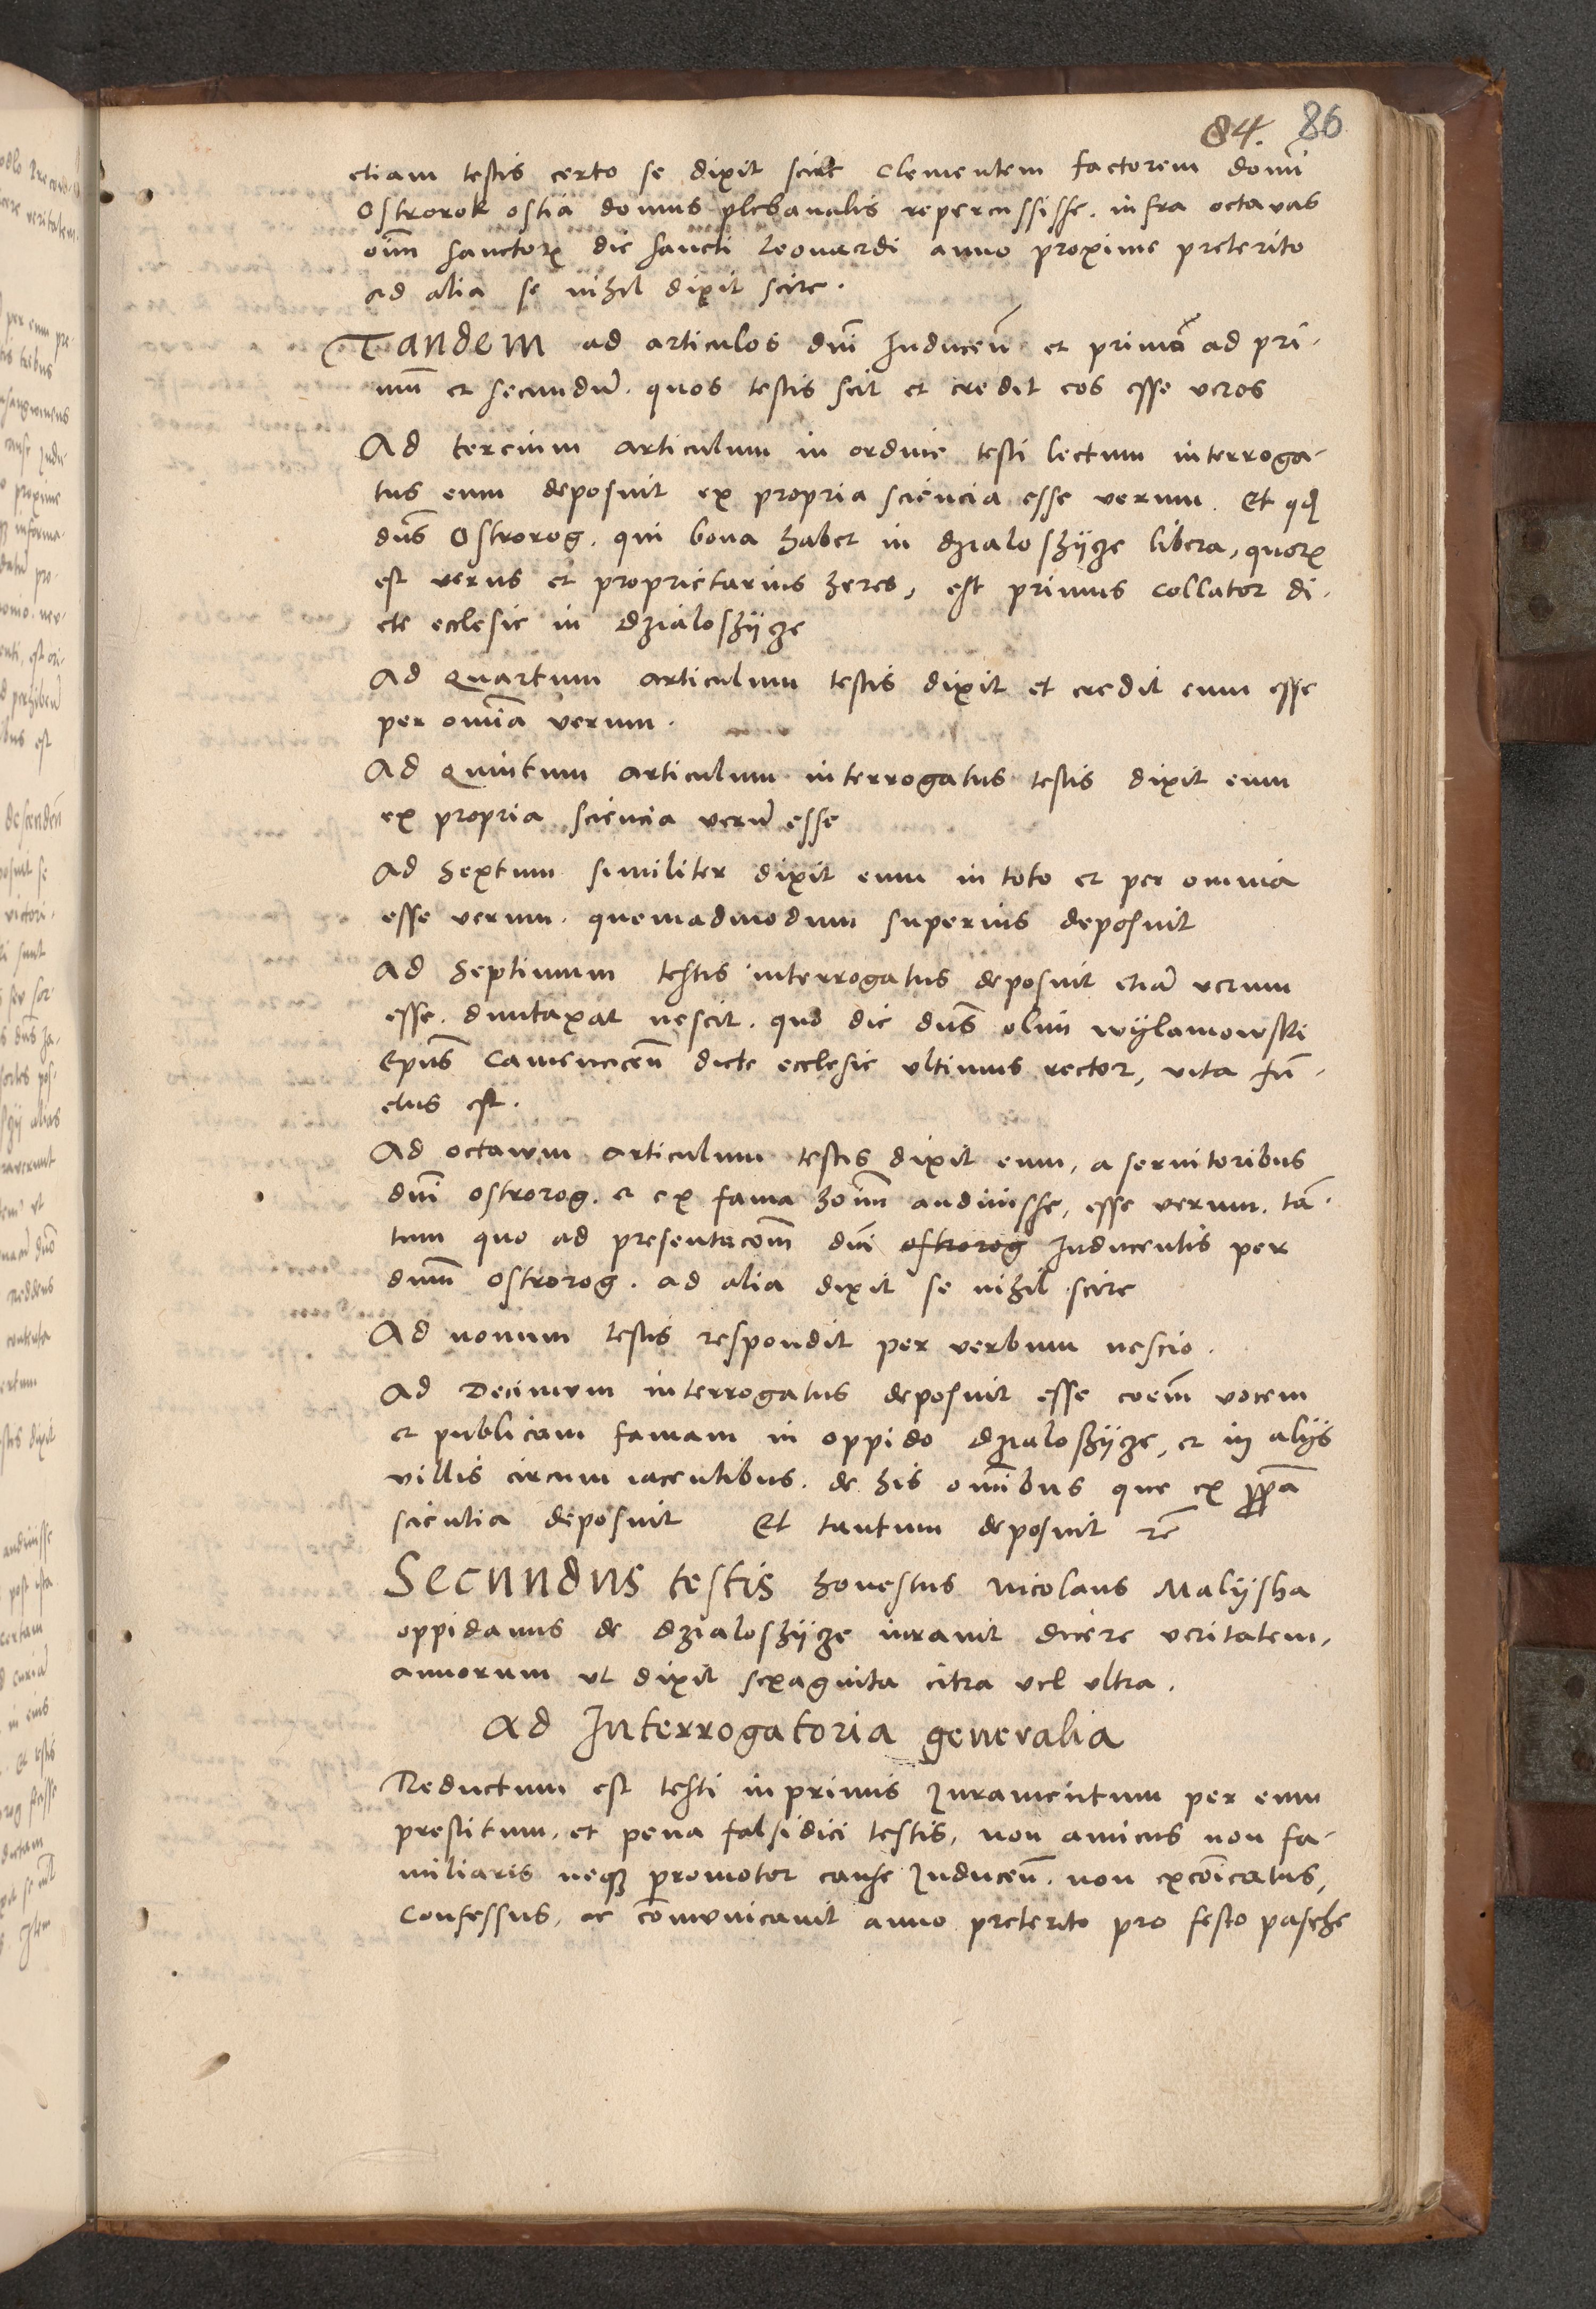 84. 86
etiam testis certo se dixit scire Clementem factorem domi͞
Ostrorok ostia domus plebanalis repercussisse. infra octavas
oi͞m sanctorꝝ die sancti Leonardi anno proxime preterito
ad alia se nihil dixit scire.
Tandem ad articulos dn͞i Inducen͞ et primo ad pri-
mu͞ et secundu͞. quos testis scit et credit eos esse veros
Ad tercium articulum in ordine testi lectum interroga-
tus eum deposuit ex propria sciencia esse verum. Et qđ
dn͞s Ostrorog. qui bona habet in dzialoszÿcze libera, quorꝝ
est verus et proprietarius heres, est primus collator di-
cte ecclesie in dzialoszÿcze
Ad Quartum articulum testis dixit et credit eum esse
per omi͞a verum.
Ad Quintum articulum interrogatus testis dixit eum
ex propria sciencia veru͞ esse
Ad Sextum similiter dixit eum in toto et per omnia
esse verum. quemadmodum superius deposuit
Ad Septimum testis interrogatus deposuit etia͞ verum
esse. duntaxat nescit. quo die dn͞s olim wylamowski
Ep͞us Camenecen͞ dicte ecclesie ultimus rector, vita fu͞-
ctus est.
Ad octavum articulum testis dixit eum, a servitoribus
dn͞i ostrorog. et ex fama ho͞im audivisse, esse verum. ta͞-
tum quo ad presentaco͞em dn͞i ostrorog Inducentis per
dn͞m Ostrorog. ad alia dixit se nihil scire
Ad nonum testis respondit per verbum nescio.
Ad Decimum interrogatus deposuit esse co͞em vocem
et publicam famam in oppido dzialoszÿcze, et in alÿs
villis circum iacentibus. de his om͞ibus que ex p͞pa
scientia deposuit Et tantum deposuit re͞
Secundus testis honestus Nicolaus Malÿsha
oppidanus de dzialoszÿcze iuravit dicere veritatem,
annorum ut dixit sexaginta citra vel ultra.
Ad Interrogatoria generalia
Deductum est testi inprimis Iuramentum per eum
prestitum, et pena falsidici testis, non amicus non fa-
miliaris neqꝫ promotor cause Inducen͞. non exco͞icatus,
Confessus, ac co͞municavit anno preterito pro festo pasche